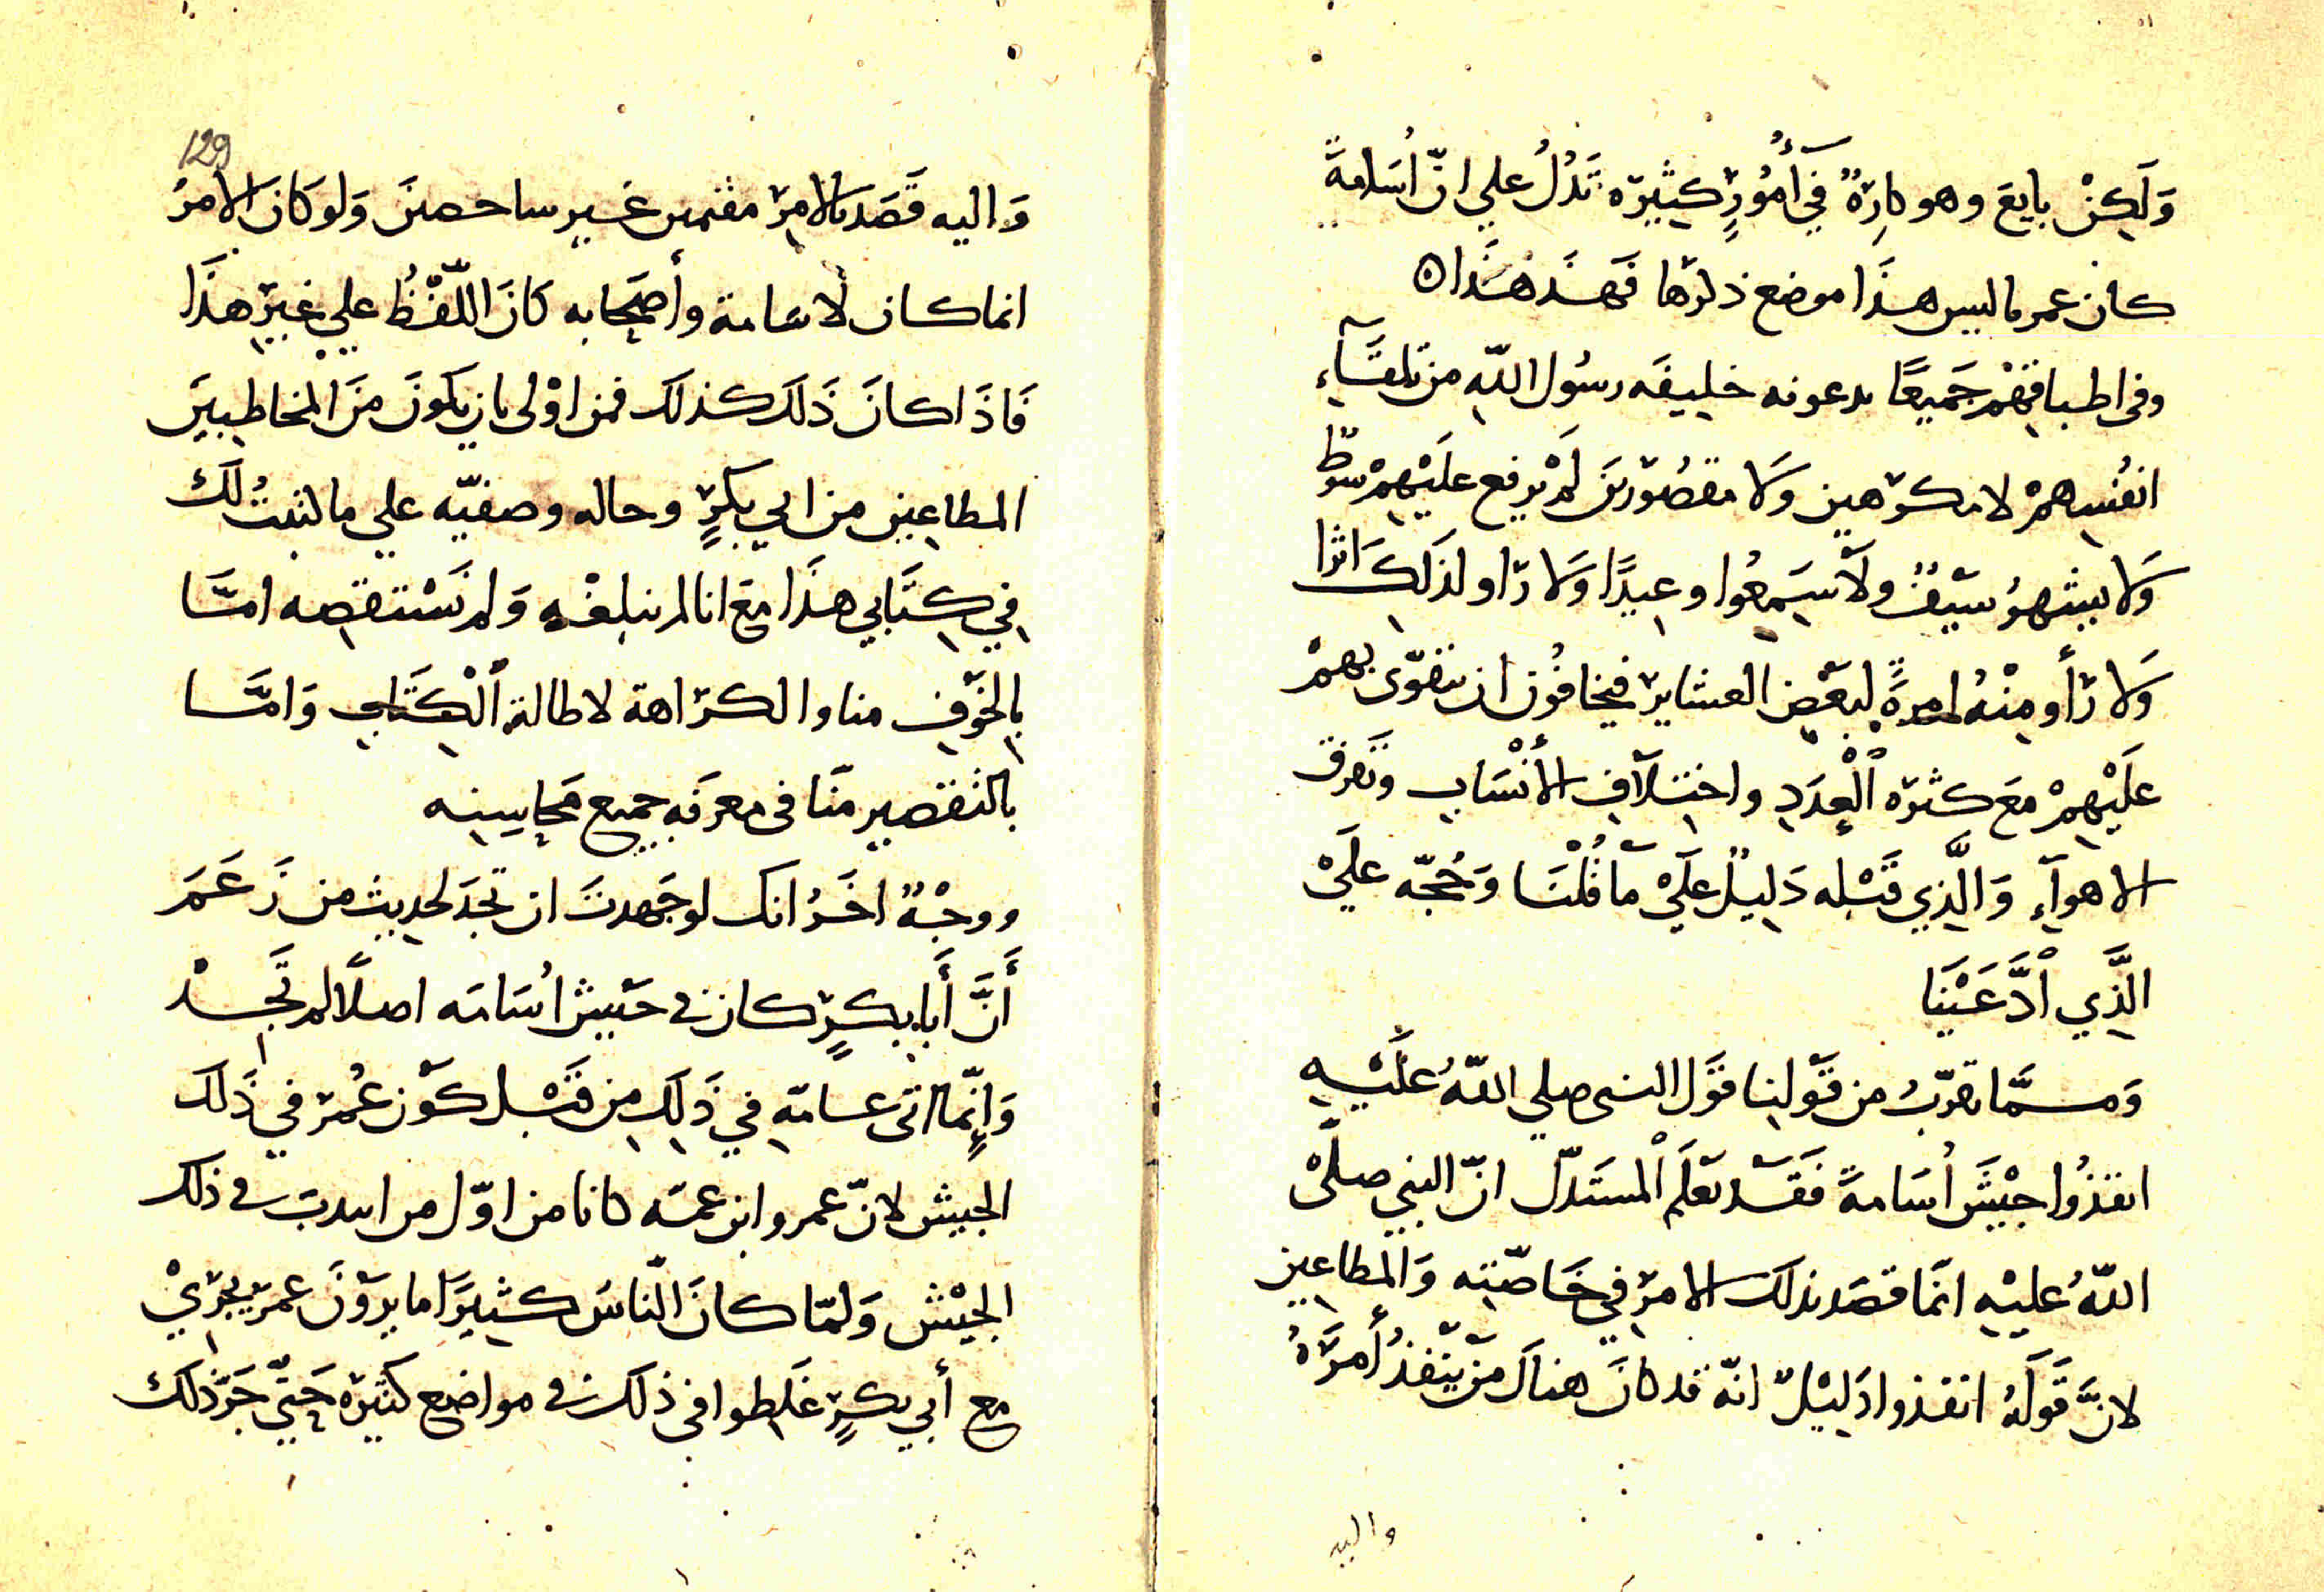 وَلَكِنْ بايعَ وهو كارِهٌ في أُمُورٍ كثيرَه تَدُلُ علي انّ أُسَامةً
كان عمر ما ليس هذَا موضع ذكرها فهَذ هَذَا ه
وفى اطباقهْم جَميعًا يدعونه خليفَه رسُول اللّه من تلقَآءِ
انفُسِهمْ لا مكرَهين وَلا مقصُورَين لَمْ يرفع علَيْهِمْ سَوْط
وَلا يشهرُ سَيْفٌ ولَا سَمِعُوا وعيدًا وَلا رَاو لذَلِكَ اثرا
وَلا رَأو مِنْهُ لمرةً لبَعْضِ العشايرَ فيخافُون ان يتقوّى بهمْ
علَيْهِمْ معَ كثرَه الْعدَدِ واختلَافِ الأَنْسَابِ وتفرق
الاهوآءِ وَالَّذِي قَبْله دَلِيلٌ علَيْ مَا قُلْنَا وَحُجّه علَيْ
الَّذِي ادَّعَيْنَا
وَممَّا يقرّبُ من قَوْلِنا قوَل النبى صلي اللّهُ علَيْهِ
انفذُوا جيْشَ أُسَامةً فَقَد تَعلَم الْمستَدلّ انّ النبي صلَّىْ
اللّهُ عليْهِ انَّما قصَد بذلكَ الامرَ في خَاصّتِه وَالمطاعِين
لانَّ قَولَهُ انفذوا دَلِيْلٌ انّه قد كانَ هناكَ مَنْ يَنْفذُ أَمرَهُ
واليه
129
وَاليه قَصَد بالامِرَ مقتمين غَير ساحصينَ وَلو كانَ الامرُ
انما كان لاسَامة وأَصحَابه كانَ اللّفْظُ علي غيرَ هذَا
فَاذَا كانَ ذَلَك كذلَك فمن اوْلى بان يكوُنَ منَ المخاطبينَ
المطاعِين من ابي بكرٍ وحاله وصفيّه علي ما اثبتُ لَك
في كِتَابي هذَا مَع انا لم نبلغْهِ وَلم نَسْتقصِه امَّا
بِالخَوْفِ منا والكرَاهة لاطالة الْكِتَابِ وَامَّا
بالتقصير منّا فى معرفَه جميع مَحاسِنِه
ووجْهٌ اخَرُ انك لو جَهدتَ ان تَجدَ لحديث من زَعَمَ
أَنَّ أَبا بكرٍ كان فى جَيش اُسَامَه اصلًا لم تَجدْ
وَانِّما اتى عامّهِ في ذَلِك مِن قَبْل كوْن عُمرَ في ذَلَك
الجيش لانّ عمر وابن عمّه كانا من اوّل من انتدبَ فى ذلك
الجيْش وَلمّا كانَ النّاسُ كثيرًا ما يروْنَ عمرَ يجَريْ
مع أَبي بكرٍ غَلِطوا في ذلك فى مواضع كثيرَه حَتَّي جَرّ ذَلك